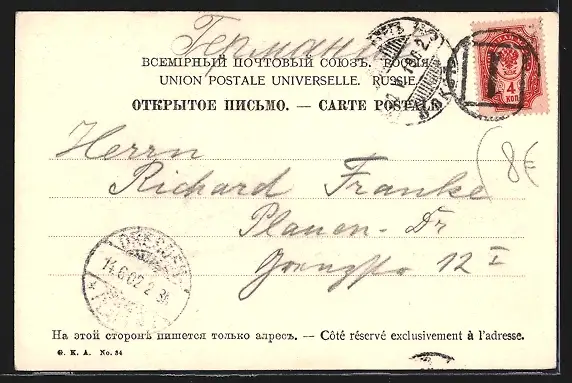 Германия
ВСЕМІРНЫЙ ПОЧТОВЫЙ СОЮЗЪ. РОССІЯ.
UNION POSTALE UNIVERSELLE. RUSSIE.
ОТКРЫТОЕ ПИСЬМО. — CARTE POSTALE
4
КОП
8€
Herrn
Richard Franke
Plauen-Dr
12 I
DRESDEN
14.6.02 2
На этой сторонѣ пишется только адресъ. — Côté réservé exclusivement à l'adresse.
G. K. A. No. 34